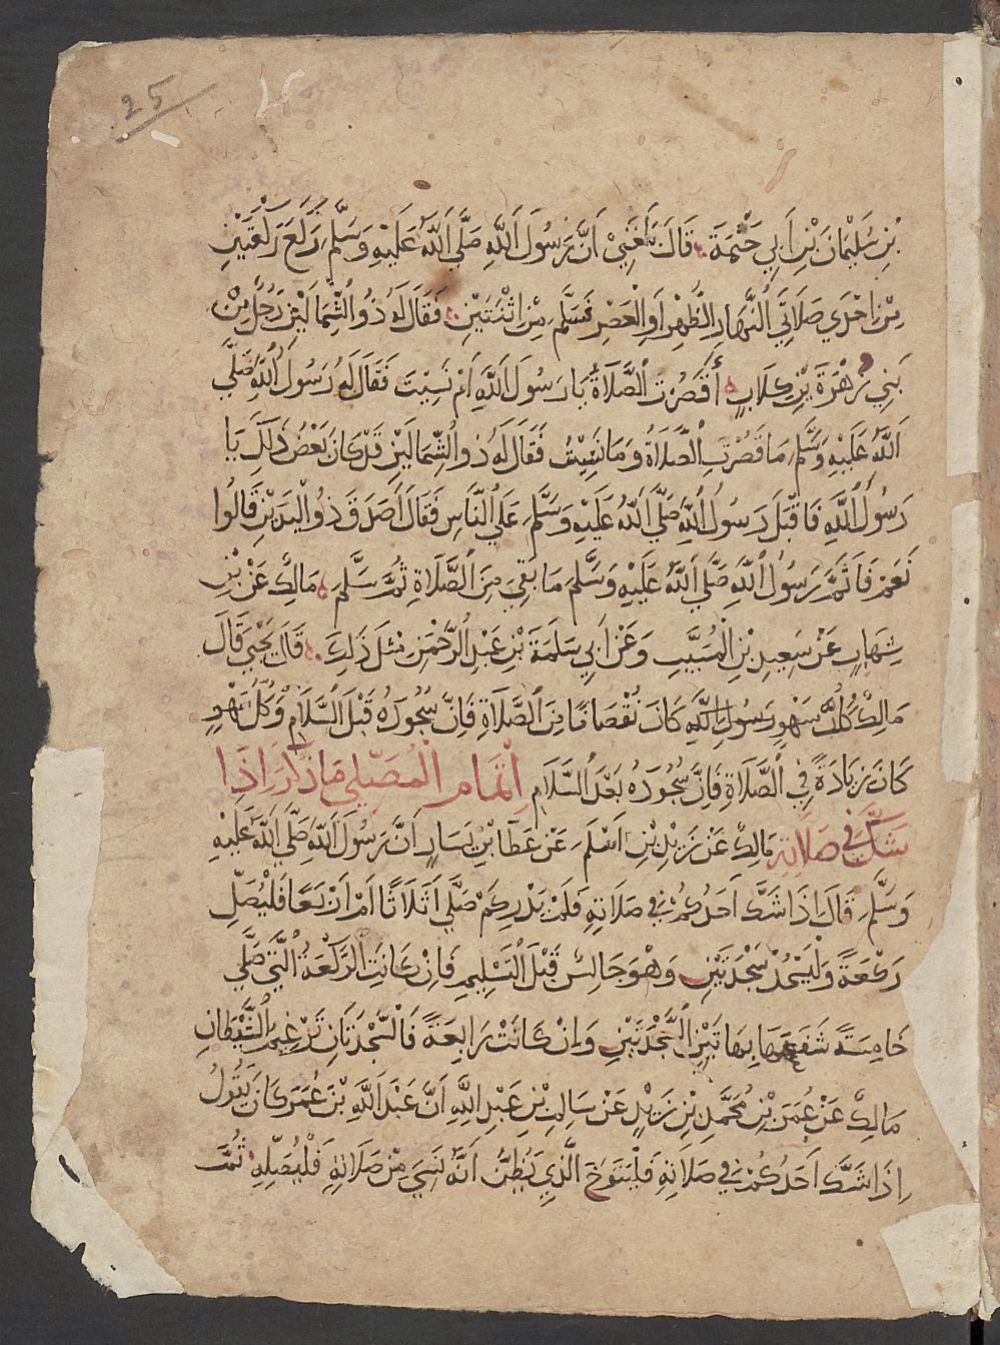 25
بْنِ سُلَيْمَانَ بْنِ أَبِي حَثْمَةَ قَالَ بَلَغَنِي أَنَّ رَسُولَ اللَّهِ صَلَّى اللَّهُ عَلَيْهِ وَسَلَّمَ رَكَعَ رَكْعَتَيْنِ
مِنْ اِحْدَي صَلَاتَيِ النَّهَارِ الظُّهْرِ أَوِ الْعَصْرِ فَسَلَّمَ مِنْ اثْنَتَيْنِ فَقَالَ لَهُ ذُو الشِّمَالَيْنِ رَجُلٌ مِنْ
بَنِي زُهْرَةَ بْنِ كِلَابٍ أَقَصُرَتِ الصَّلَاةُ يَا رَسُولَ اللَّهِ أَمْ نَسِيتَ فَقَالَ لَهُ رَسُولُ اللَّهِ صَلَّى
اللَّهُ عَلَيْهِ وَسَلَّمَ مَا قَصُرَتِ الصَّلَاةُ وَمَا نَسِيْتُ فَقَالَ لَهُ ذو الشِّمَالَيْنِ قَدْ كَانَ بَعْضُ ذَلِكَ يَا
رَسُولَ اللَّهِ فَاَقْبَلَ رَسُولُ اللَّهِ صَلَّى اللَّهُ عَلَيْهِ وَسَلَّمَ عَلَي النَّاسِ فَقَالَ أَصَدَقَ ذُو الْيَدَيْنِ قَالُوا
نَعَمْ فَاَتَمَّ رَسُولُ اللَّهِ صَلَّى اللَّهُ عَلَيْهِ وَسَلَّمَ مَا بَقِيَ مِنَ الصَّلَاةِ ثُمَّ سَلَّمَ مَالِكٌ عَنْ بْنِ
شِهَابٍ عَنْ سَعِيدِ بْنِ الْمُسَيَّبِ وَعَنْ اَبِي سَلَمَةَ بْنِ عَبْدِ الرَّحْمَنِ مِثْلَ ذَلِكَ قَالَ يَحْيَي قَالَ
مَالِكٌ كُلُّ سَهْوٍ رَسُولِ اللَّهِ كَانَ نُقْصَانًا مِنَ الصَّلَاةِ فَاِنَّ سُجُودَهُ قَبْلَ السَّلَامِ وَكُلُّ سَهْوٍ
كَانَ زِيَادَةً فِي الصَّلَاةِ فَاِنَّ سُجُودَهُ بَعْدَ السَّلَامِ اِتْمَام الْمُصَلِّي مَا ذَكَرَ اِذَا
شَكَّ فِي صَلَاتِهِ مَالِكٌ عَنْ زَيْدِ بْنِ اَسْلَمَ عَنْ عَطَا بْنِ يَسَارٍ اَنَّ رَسُولَ اللَّهِ صَلَّى اللَّهُ عَلَيْهِ
وَسَلَّمَ قَالَ اِذَا شَكَّ اَحَدُكُمْ فِي صَلَاتِهِ فَلَمْ يَدْرِ كَمْ صَلَّي اَثَلَاثًا اَمْ اَرْبَعًا فَلْيُصَلِّ
رَكْعَةً وَلْيَسْجُدْ سَجْدَتَيْنِ وَهْوَ جَالِسٌ قَبْلَ التَّسْلِيمِ فَاِنْ كَانَتِ الرَّكْعَةُ الَّتِي صَلَّي
خَامِسَةً شَفَعَهَا بِهَاتَيْنِ السَّجْدَتَيْنِ وَاِنْ كَانَتْ رَابِعَةً فَالسَّجْدَتَانِ تَرْغِيمٌ لِلشَّيْطَانِ
مَالِكٌ عَنْ عُمَرَ بْنِ مُحَمَّدِ بْنِ زَيْدٍ عَنْ سَالِمِ بْنِ عَبْدِ اللَّهِ اَنَّ عَبْدَ اللَّهِ بْنَ عُمَرَ كَانَ يَقُولُ
اِذَا شَكَّ اَحَدُكُمْ فِي صَلَاتِهِ فَلْيَتَوَخَّ الَّذِي يَظُنُّ اَنَّهُ نَسِيَ مِنْ صَلَاتِهِ فَلْيُصَلِّهِ ثُمَّ